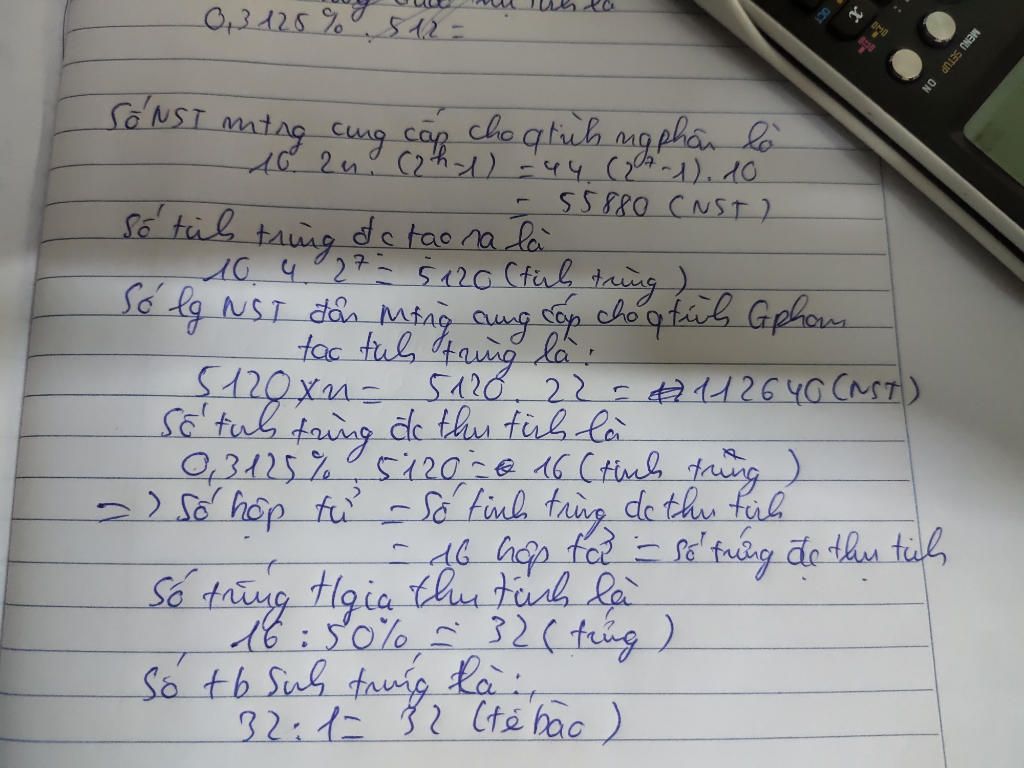 0,3125% . 512 =
Số NST mtrg cung cấp cho qtình ng phân là
10. 2n. (2ⁿ-1) = 44. (2⁷-1). 10
= 55880 (NST)
Số tinh trùng đc tạo ra là
10. 4. 2⁷ = 5120 (tinh trùng)
Số lg NST đơn mtrg cung cấp cho qtình Gphân
tạo tinh trùng là:
5120 x n = 5120. 22 = 112640 (NST)
Số tinh trùng đc thụ tinh là
0,3125%. 5120 = 16 (tinh trùng)
=> Số hợp tử = Số tinh trùng đc thụ tinh
= 16 hợp tử = số trứng đc thụ tinh
Số trứng tgia thụ tinh là
16 : 50% = 32 (trứng)
Số tb sinh trứng là:
32 : 1 = 32 (tế bào)
MENU SETUP
ON
x